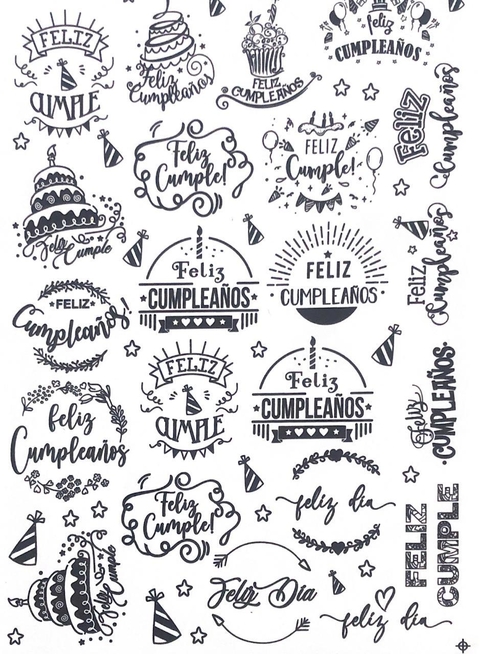 FELIZ
CUMPLE
Feliz
Cumpleaños
FELIZ
CUMPLEAÑOS
feliz
CUMPLEAÑOS
Feliz
Cumpleaños
Feliz
Cumple!
FELIZ
Cumple!
Feliz Cumple
Feliz
CUMPLEAÑOS
FELIZ
CUMPLEAÑOS
Feliz
Cumpleaños
FELIZ
Cumpleaños!
FELIZ
CUMPLE
Feliz
CUMPLEAÑOS
Feliz
CUMPLEAÑOS
feliz
Cumpleaños
Feliz
Cumple!
feliz día
FELIZ
CUMPLE
Feliz Cumple
Feliz Día
feliz día